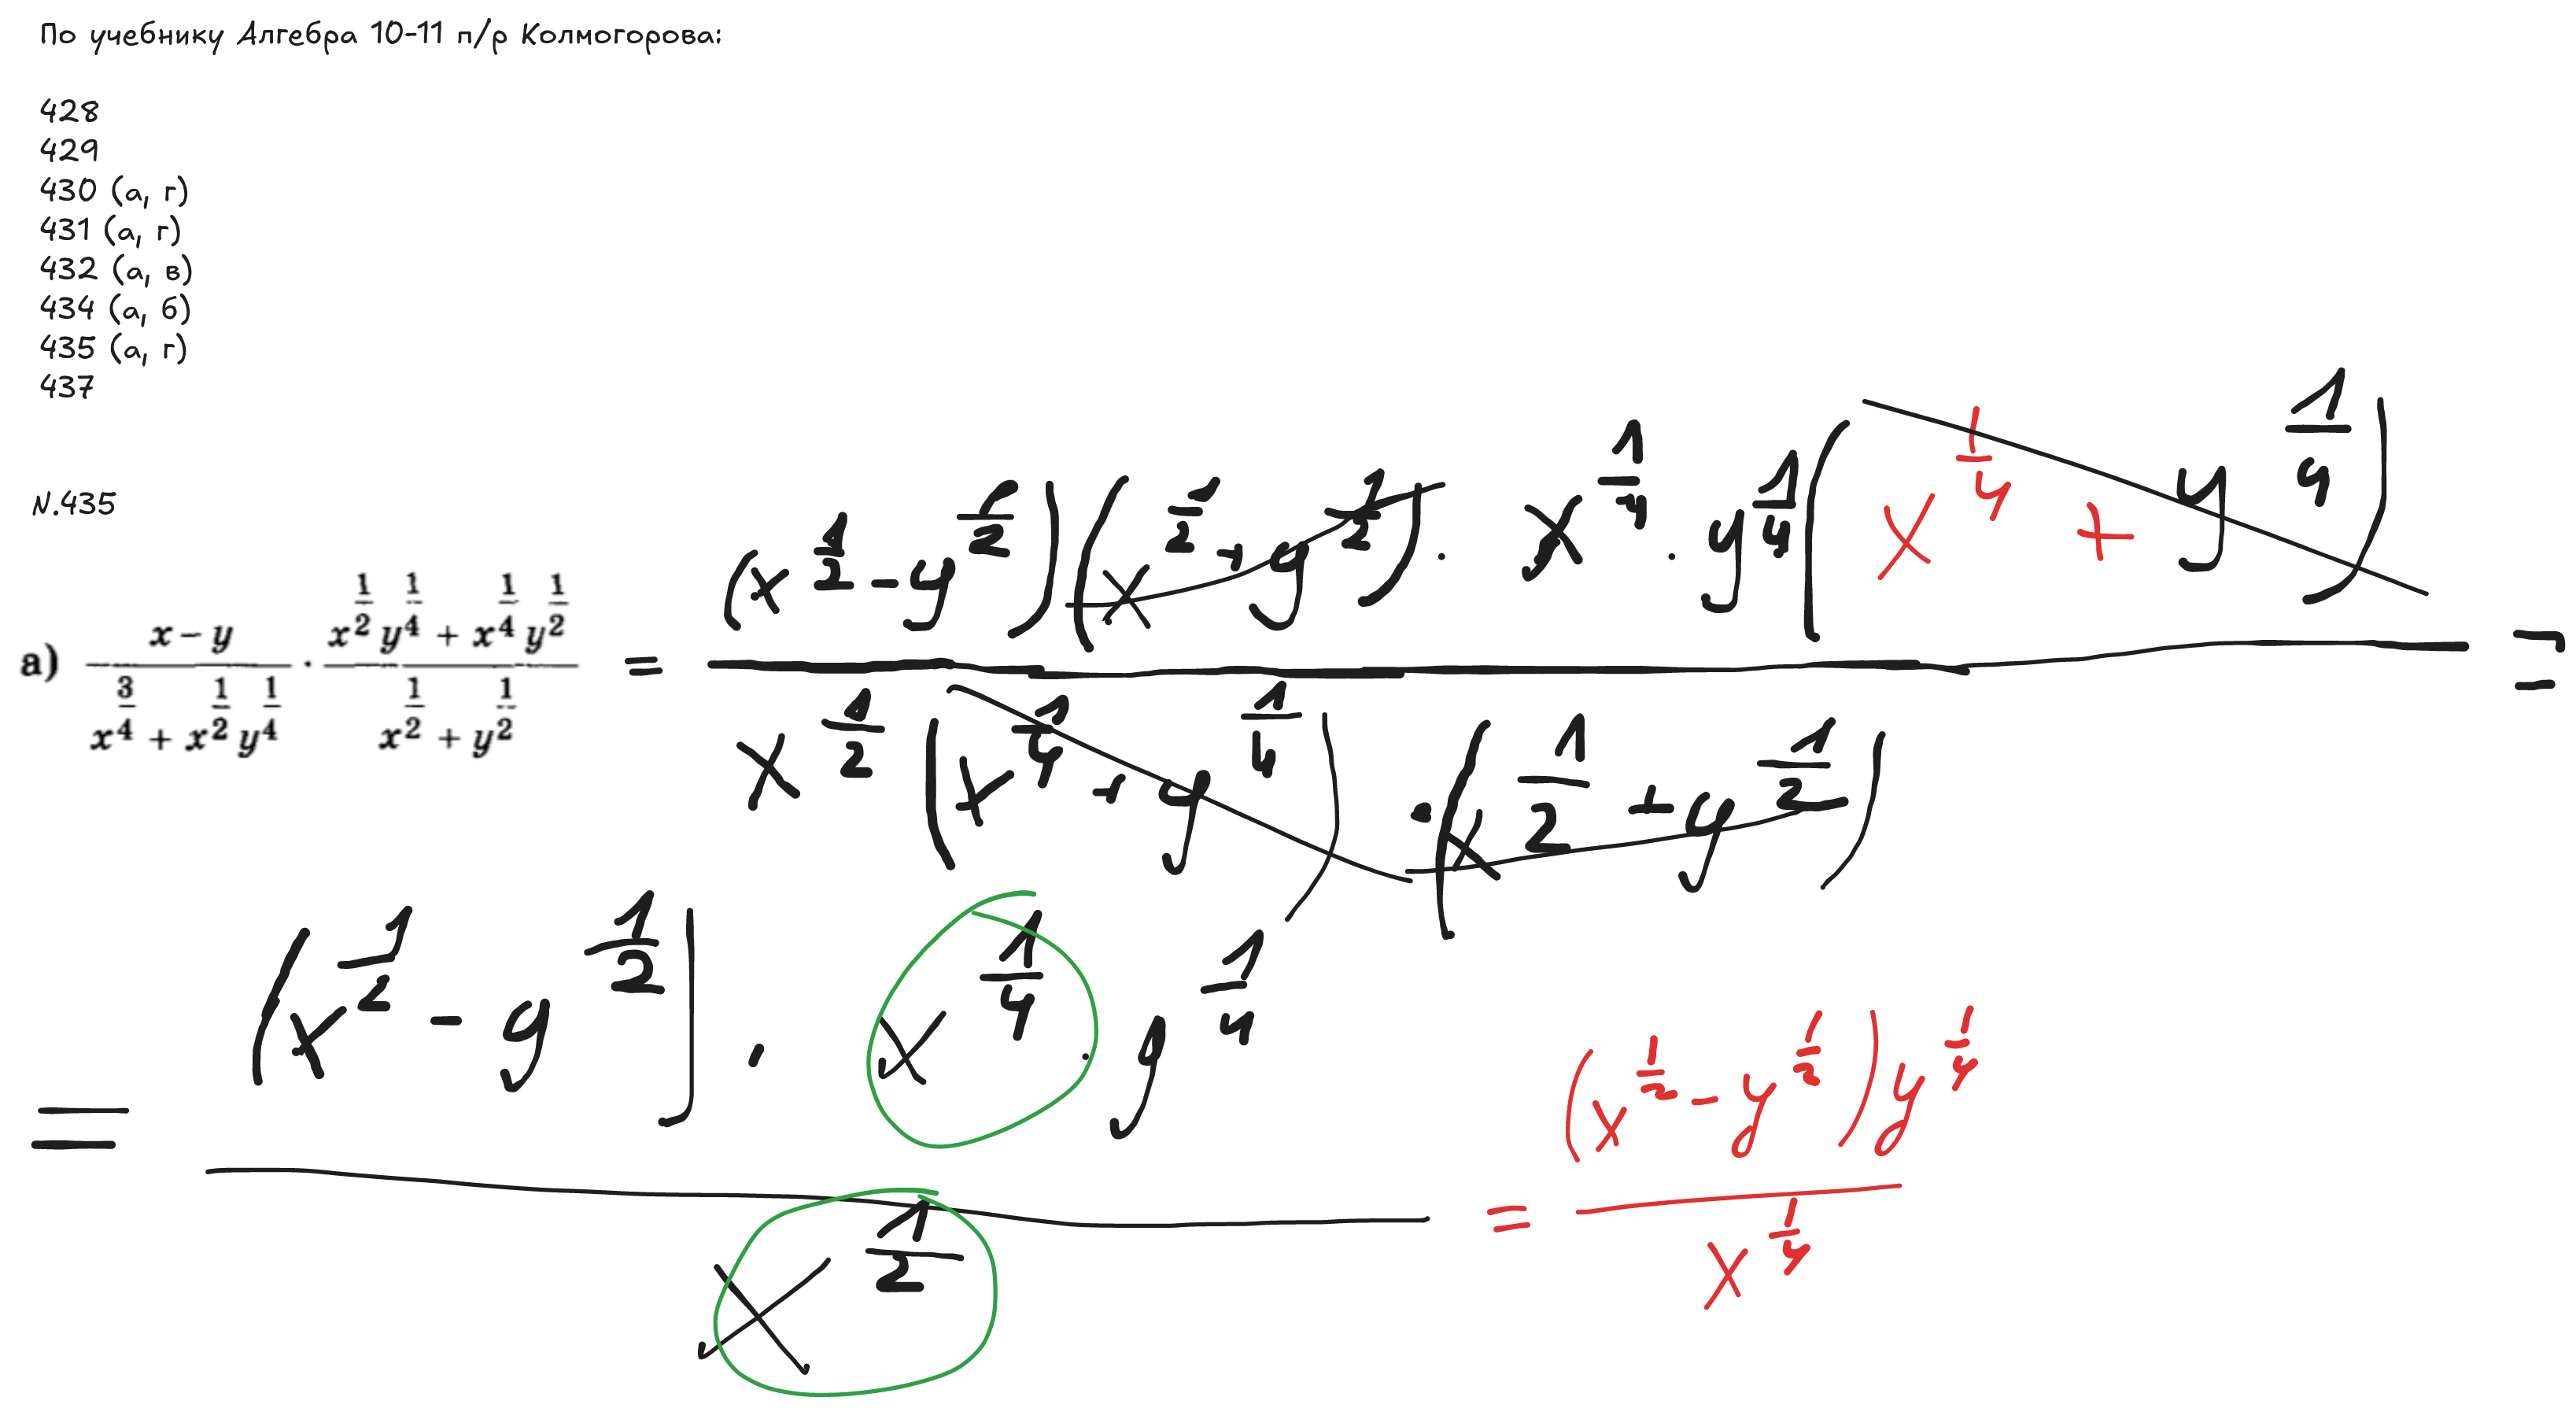 По учебнику Алгебра 10-11 п/р Колмогорова:
428
429
430 (а, г)
431 (а, г)
432 (а, в)
434 (а, б)
435 (а, г)
437
N.435
а) \frac{x-y}{x^{\frac{3}{4}}+x^{\frac{1}{2}}y^{\frac{1}{4}}} · \frac{x^{\frac{1}{2}}y^{\frac{1}{4}}+x^{\frac{1}{4}}y^{\frac{1}{2}}}{x^{\frac{1}{2}}+y^{\frac{1}{2}}} = \frac{(x^{\frac{1}{2}}-y^{\frac{1}{2}})(x^{\frac{1}{2}}+y^{\frac{1}{2}}) · x^{\frac{1}{4}} · y^{\frac{1}{4}}(x^{\frac{1}{4}}+y^{\frac{1}{4}})}{x^{\frac{1}{2}}(x^{\frac{1}{4}}+y^{\frac{1}{4}}) · (x^{\frac{1}{2}}+y^{\frac{1}{2}})} =
= \frac{(x^{\frac{1}{2}}-y^{\frac{1}{2}}) · x^{\frac{1}{4}} · y^{\frac{1}{4}}}{x^{\frac{1}{2}}} = \frac{(x^{\frac{1}{2}}-y^{\frac{1}{2}})y^{\frac{1}{4}}}{x^{\frac{1}{4}}}